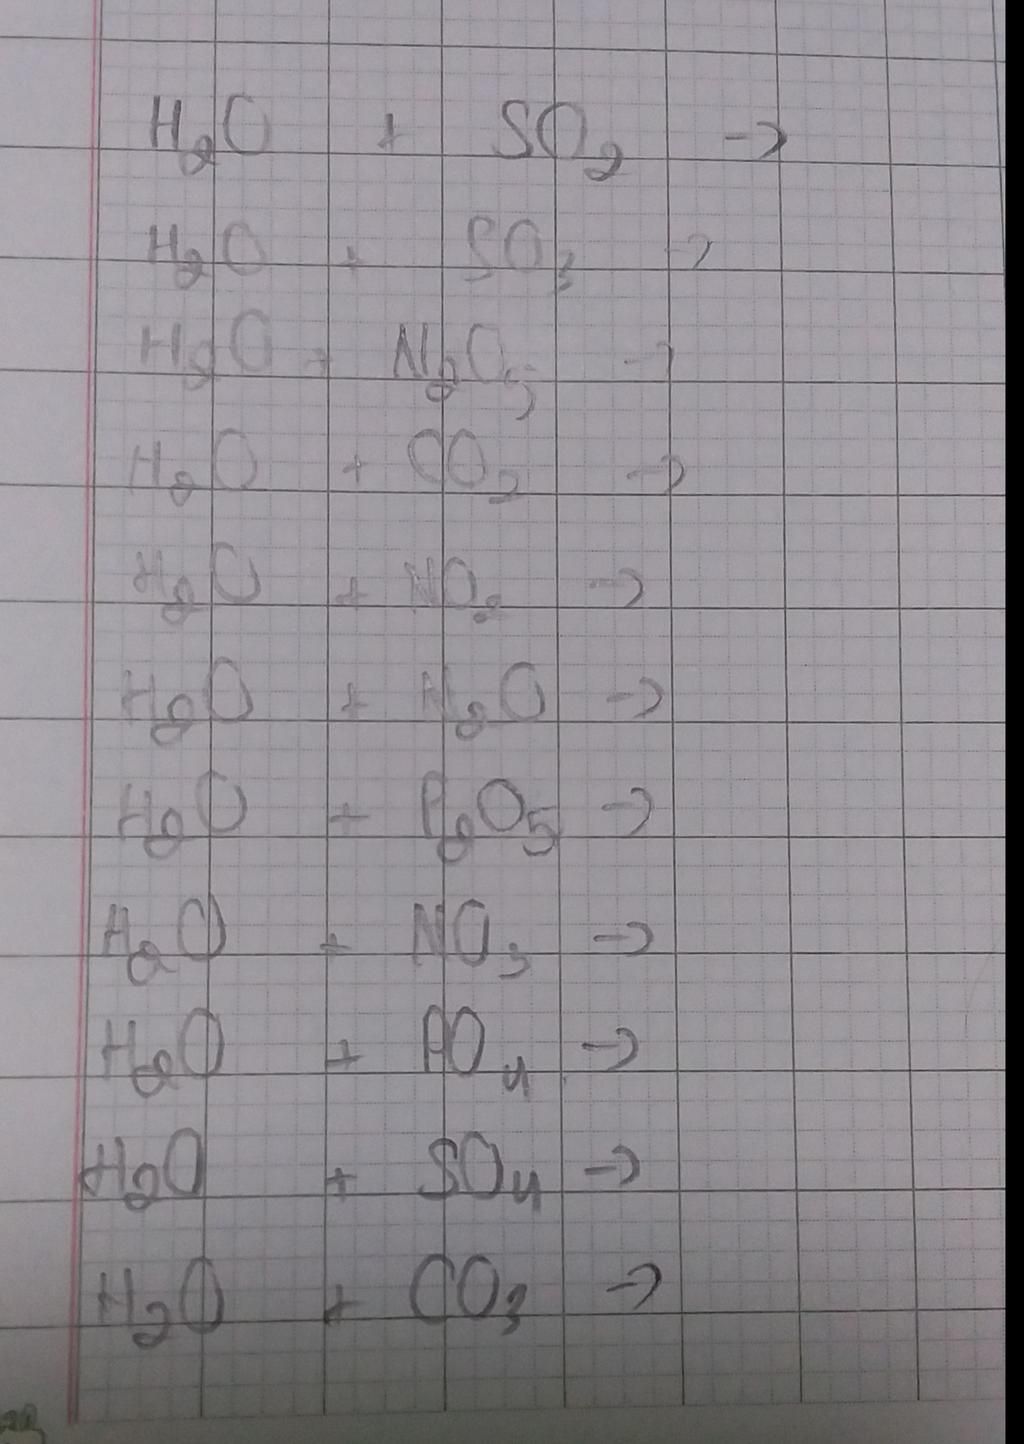 H₂O + SO₂ →
H₂O + SO₃ →
H₂O + N₂O₅ →
H₂O + CO₂ →
H₂O + NO₂ →
H₂O + N₂O →
H₂O + P₂O₅ →
H₂O + NO₃ →
H₂O + PO₄ →
H₂O + SO₄ →
H₂O + CO₃ →